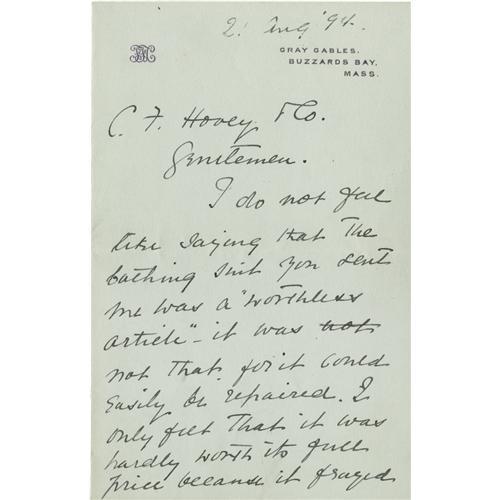 2. Aug '94.
GRAY GABLES.
BUZZARDS BAY,
MASS.
C. F. Hovey & Co.
Gentlemen.
I do not feel
like saying that the
bathing suit you sent
me was a "worthless
article" - it was not
not that, for it could
easily be repaired. I
only felt that it was
hardly worth its full
price because it frayed